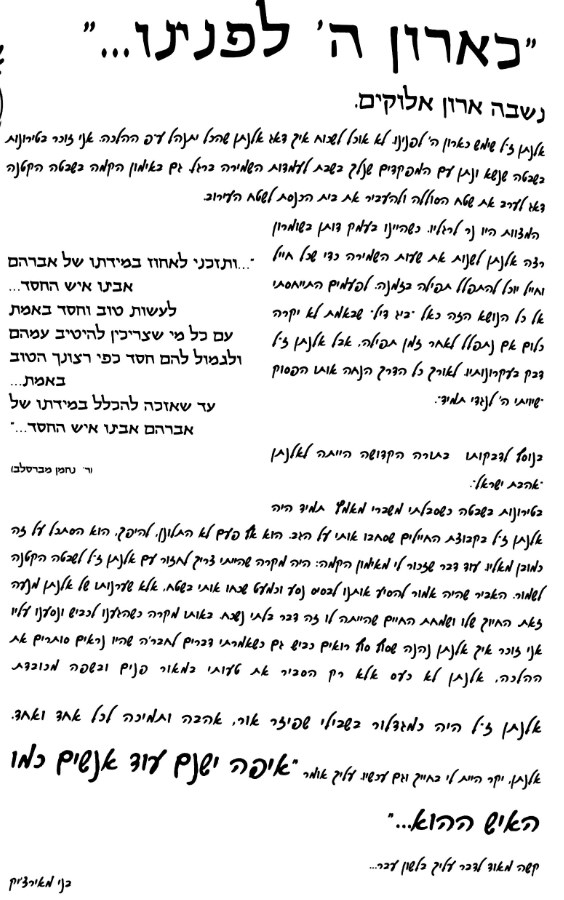 "כארון ה' לפנינו..."
נשבה ארון אלוקים.
אלנתן ז"ל שימש כארון ה' לפנינו. לא אוכל לשכוח איך דאג אלנתן שהכל יתנהל ע"פ ההלכה. אני זוכר בטירונות
בשבטה שנשא ונתן עם המפקדים שנלך בשבת לעמדות השמירה ברגל. גם באימון הקמה בשבטה הקטנה
דאג לערב את שטח הסוללה ולהעביר את בית הכנסת לשטח העירוב.
המצוות היו נר לרגליו. כשהיינו בעמק דותן בשומרון
רצה אלנתן לשנות את שעות השמירה כדי שכל חייל
וחייל יוכל להתפלל תפילה בזמנה. לפעמים התייחסתי
אל כל הנושא הזה כאל "ביג דיל" שבאמת לא יקרה
כלום אם נתפלל לאחר זמן תפילה, אבל אלנתן ז"ל
דבק בעקרונותיו. לאורך כל הדרך הנחה אותו הפסוק
"שיוויתי ה' לנגדי תמיד".
"...ותזכני לאחוז במידתו של אברהם
אבינו איש החסד...
לעשות טוב וחסד באמת
עם כל מי שצריכין להיטיב עמהם
ולגמול להם חסד כפי רצונך הטוב
באמת...
עד שאזכה להכלל במידתו של
אברהם אבינו איש החסד..."
(ר' נחמן מברסלב)
בנוסף לדבקותו בתורה הקדושה הייתה לאלנתן
"אהבת ישראל".
בטירונות בשבטה כשסבלתי משברי מאמץ תמיד היה
אלנתן ז"ל בקבוצת החיילים שסחבו אותי על הגב. הוא אף פעם לא התלונן, להיפך, הוא הסתכל על זה
כמובן מאליו. עוד דבר שזכור לי מאימון הקמה: היה מקרה שהייתי צריך לחזור עם אלנתן ז"ל לשבטה הקטנה
לשמור. האביר שהיה אמור להסיע אותנו לבסיס נסע וכמעט שכחו אותי בשטח, אלא שערנותו של אלנתן מנעה
זאת. החיוך שלו ושמחת החיים שהייתה לו זה דבר בלתי נשכח. באותו מקרה כשהגענו לכביש ונסענו עליו
אני זוכר איך אלנתן נהנה שסוף סוף רואים כביש. גם כשאמרתי דברים לחבר'ה שהיו נראים סותרים את
ההלכה, אלנתן לא כעס אלא רק הסביר את טעותי במאור פנים ובשפה מכובדת.
אלנתן ז"ל היה כמגדלור בשבילי שפיזר אור, אהבה ותמיכה לכל אחד ואחד.
אלנתן, יקר היית לי בחייך וגם עכשיו. עליך אומר "איפה ישנם עוד אנשים כמו
האיש ההוא..."
קשה מאוד לדבר עליך בלשון עבר...
בני מאירצ'יק